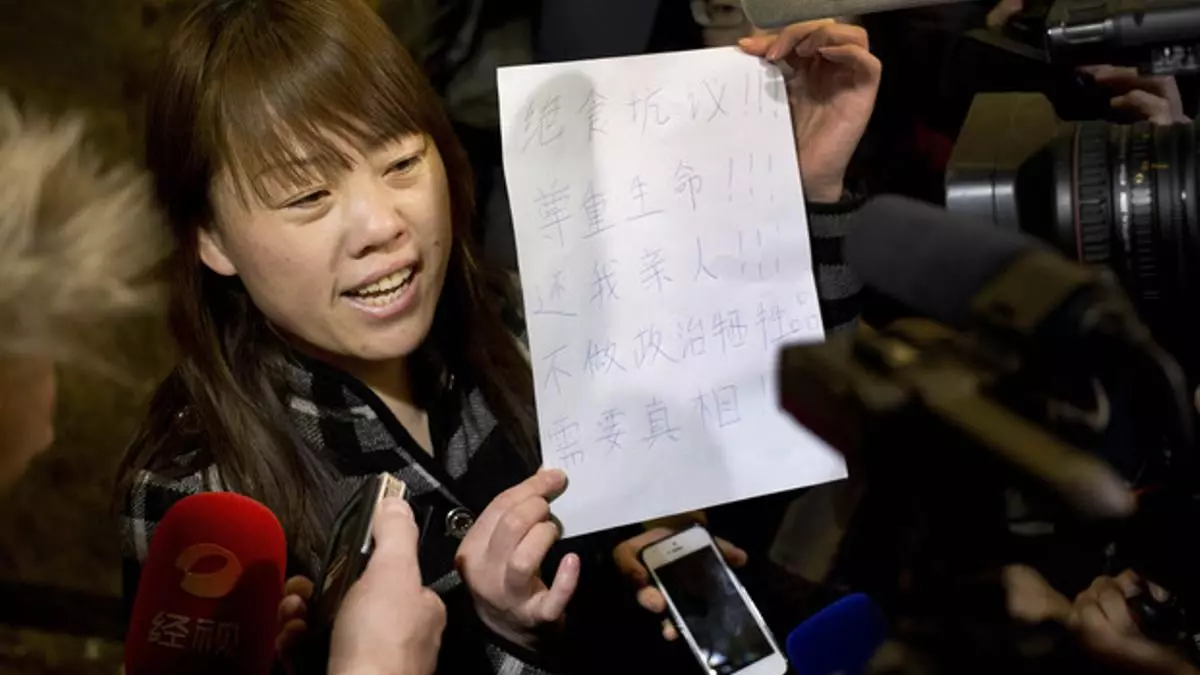 绝食坑议!!!
尊重生命!!!
还我亲人!!!
不做政治牺牲品
需要真相!
经视